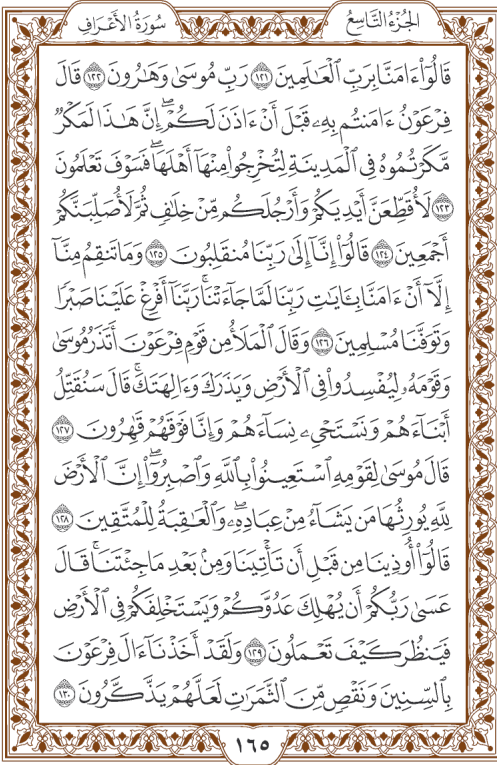 الجُزْءُ التَّاسِعُ
سُورَةُ الأَعْرَافِ
قَالُوٓا۟ ءَامَنَّا بِرَبِّ ٱلْعَـٰلَمِينَ ١٢١ رَبِّ مُوسَىٰ وَهَـٰرُونَ ١٢٢ قَالَ
فِرْعَوْنُ ءَامَنتُم بِهِۦ قَبْلَ أَنْ ءَاذَنَ لَكُمْ ۖ إِنَّ هَـٰذَا لَمَكْرٌ
مَّكَرْتُمُوهُ فِى ٱلْمَدِينَةِ لِتُخْرِجُوا۟ مِنْهَآ أَهْلَهَا ۖ فَسَوْفَ تَعْلَمُونَ
١٢٣ لَأُقَطِّعَنَّ أَيْدِيَكُمْ وَأَرْجُلَكُم مِّنْ خِلَـٰفٍ ثُمَّ لَأُصَلِّبَنَّكُمْ
أَجْمَعِينَ ١٢٤ قَالُوٓا۟ إِنَّآ إِلَىٰ رَبِّنَا مُنقَلِبُونَ ١٢٥ وَمَا تَنقِمُ مِنَّآ
إِلَّآ أَنْ ءَامَنَّا بِـَٔايَـٰتِ رَبِّنَا لَمَّا جَآءَتْنَا ۚ رَبَّنَآ أَفْرِغْ عَلَيْنَا صَبْرًا
وَتَوَفَّنَا مُسْلِمِينَ ١٢٦ وَقَالَ ٱلْمَلَأُ مِن قَوْمِ فِرْعَوْنَ أَتَذَرُ مُوسَىٰ
وَقَوْمَهُۥ لِيُفْسِدُوا۟ فِى ٱلْأَرْضِ وَيَذَرَكَ وَءَالِهَتَكَ ۚ قَالَ سَنُقَتِّلُ
أَبْنَآءَهُمْ وَنَسْتَحْىِۦ نِسَآءَهُمْ وَإِنَّا فَوْقَهُمْ قَـٰهِرُونَ ١٢٧
قَالَ مُوسَىٰ لِقَوْمِهِ ٱسْتَعِينُوا۟ بِٱللَّهِ وَٱصْبِرُوٓا۟ ۖ إِنَّ ٱلْأَرْضَ
لِلَّهِ يُورِثُهَا مَن يَشَآءُ مِنْ عِبَادِهِۦ ۖ وَٱلْعَـٰقِبَةُ لِلْمُتَّقِينَ ١٢٨
قَالُوٓا۟ أُوذِينَا مِن قَبْلِ أَن تَأْتِيَنَا وَمِنۢ بَعْدِ مَا جِئْتَنَا ۚ قَالَ
عَسَىٰ رَبُّكُمْ أَن يُهْلِكَ عَدُوَّكُمْ وَيَسْتَخْلِفَكُمْ فِى ٱلْأَرْضِ
فَيَنظُرَ كَيْفَ تَعْمَلُونَ ١٢٩ وَلَقَدْ أَخَذْنَآ ءَالَ فِرْعَوْنَ
بِٱلسِّنِينَ وَنَقْصٍ مِّنَ ٱلثَّمَرَٰتِ لَعَلَّهُمْ يَذَّكَّرُونَ ١٣٠
١٦٥